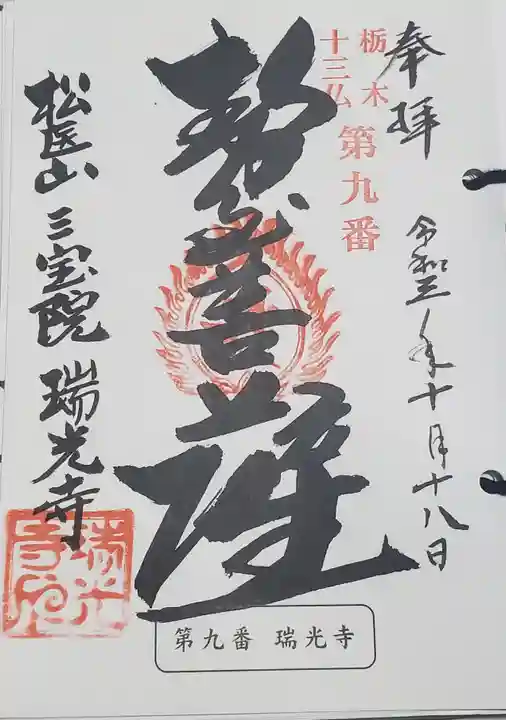 奉拝
令和三年十月十八日
栃木
十三仏
第九番
勢至菩薩
松医山 三宝院 瑞光寺
瑞光寺印
第九番 瑞光寺